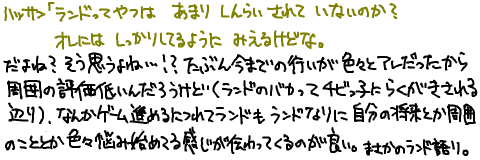 ハッサン「ランドってやつは あまり しんらい されて いないのか?
オレには しっかりしてるように みえるけどな。
だよね?そう思うよね…!?たぶん今までの行いが色々とアレだったから
周囲の評価低いんだろうけど(ランドのバカってチビっ子にらくがきされる
辺り)、なんかゲーム進めるにつれてランドもランドなりに自分の将来とか周囲
のこととか色々悩み始めてる感じが伝わってくるのが良い。まさかのランド語り。